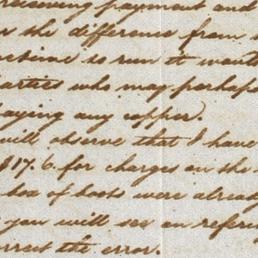 receiving payment and
the difference from
so run it
parties who may perhaps
paying any copper.
will observe that I have
17.6. for charges on the
box of boots were already
you will see on referring
correct the error.